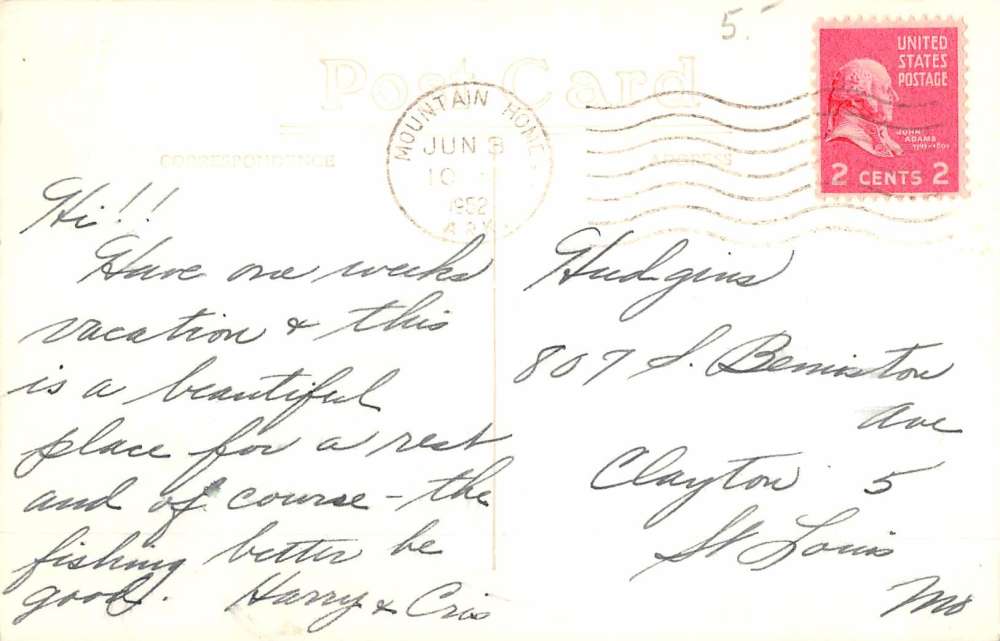 5.-
Post Card
CORRESPONDENCE
ADDRESS
MOUNTAIN HOME
JUN 3
10
1952
ARK
UNITED
STATES
POSTAGE
JOHN
ADAMS
1797-1801
2 CENTS 2
Hi!!
Have one weeks
vacation & this
is a beautiful
place for a rest
and of course - the
fishing better be
good. Harry & Cris
Hudgins
807 S. Bemiston
Ave
Clayton 5
St Louis
Mo